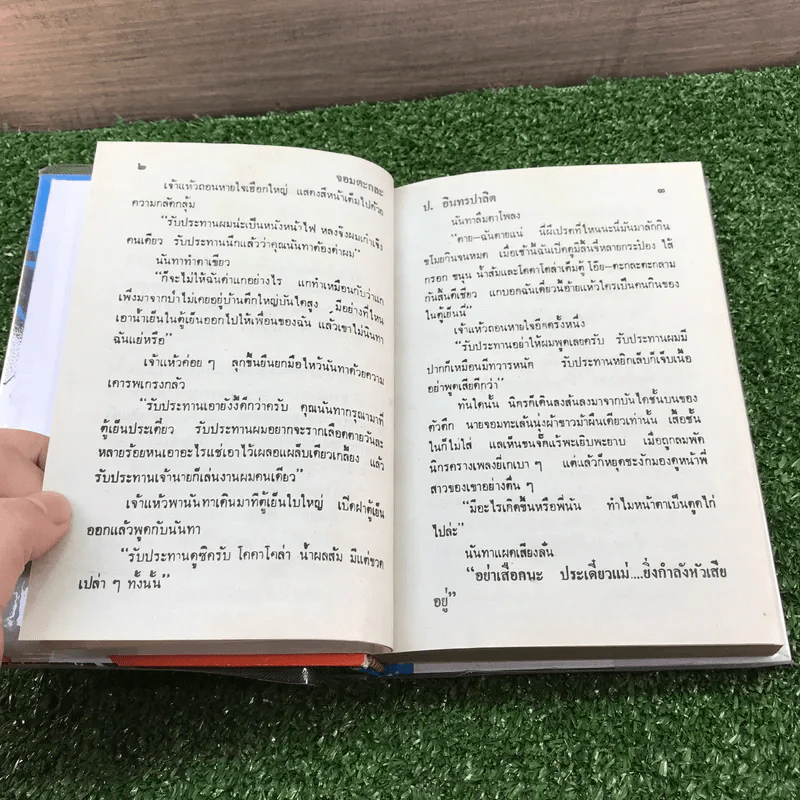 ๒ จอมตะกละ
เจ้าแห้วถอนหายใจเฮือกใหญ่ แสดงสีหน้าเต็มไปด้วย
ความกลัดกลุ้ม
“รับประทานผมน่ะเป็นหนังหน้าไฟ หลงจิ้งผมเก๋าเจ้ง
คนเดียว รับประทานนึกแล้วว่าคุณนันทาต้องด่าผม”
นันทาทำตาเขียว
“ก็จะไม่ให้ฉันด่าแกอย่างไร แกทำเหมือนกับว่าแก
เพิ่งมาจากป่าไม่เคยอยู่บ้านตึกใหญ่บันไดสูง มีอย่างที่ไหน
เอาน้ำเย็นในตู้เย็นออกไปให้เพื่อนของฉัน แล้วเขาไม่นินทา
ฉันแย่หรือ”
เจ้าแห้วค่อย ๆ ลุกขึ้นยืนยกมือไหว้นันทาด้วยความ
เคารพเกรงกลัว
“รับประทานเอายังงี้ดีกว่าครับ คุณนันทากรุณามาที่
ตู้เย็นประเดี๋ยว รับประทานผมอยากจะรากเลือดตายวันละ
หลายร้อยหนเอาอะไรแช่เอาไว้เผลอแผล็บเดียวเกลี้ยง แล้ว
รับประทานเจ้านายก็เล่นงานผมคนเดียว”
เจ้าแห้วพานันทาเดินมาที่ตู้เย็นใบใหญ่ เปิดฝาตู้เย็น
ออกแล้วพูดกับนันทา
“รับประทานดูซิครับ โคคาโคล่า น้ำผลส้ม มีแต่ขวด
เปล่า ๆ ทั้งนั้น”
ป. อินทรปาลิต ๓
นันทาลืมตาโพลง
“ตาย–ฉันตายแน่ นี่ผีเปรตที่ไหนนะนี่มันมาลักกิน
ขโมยกินจนหมด เมื่อเช้านี้ฉันเปิดดูมีลิ้นจี่หลายกระป๋อง ไส้
กรอก ขนุน น้ำส้มและโคคาโคล่าเต็มตู้ โอ๊ย–ตะกละตะกลาม
กันสิ้นดีเชียว แกบอกฉันเดี๋ยวนี้อ้ายแห้วใครเป็นคนกินของ
ในตู้เย็นนี่”
เจ้าแห้วถอนหายใจอีกครั้งหนึ่ง
“รับประทานอย่าให้ผมพูดเลยครับ รับประทานผมมี
ปากก็เหมือนมีทวารหนัก รับประทานหยิกเล็บก็เจ็บเนื้อ
อย่าพูดเสียดีกว่า”
ทันใดนั้น นิกรก็เดินลงส้นลงมาจากบันไดชั้นบนของ
ตัวตึก นายจอมทะเล้นนุ่งผ้าขาวม้าผืนเดียวเท่านั้น เสื้อชั้น
ในก็ไม่ใส่ แลเห็นขนจั๊กแร้พะเยิบพะยาบ เมื่อถูกลมพัด
นิกรครางเพลงยี่เกเบา ๆ แต่แล้วก็หยุดชะงักมองดูหน้าพี่
สาวของเขาอย่างตื่น ๆ
“มีอะไรเกิดขึ้นหรือพี่นัน ทำไมหน้าตาเป็นตูดไก่
ไปล่ะ”
นันทาแผดเสียงลั่น
“อย่าเสือกนะ ประเดี๋ยวแม่....ยิ่งกำลังหัวเสีย
อยู่”